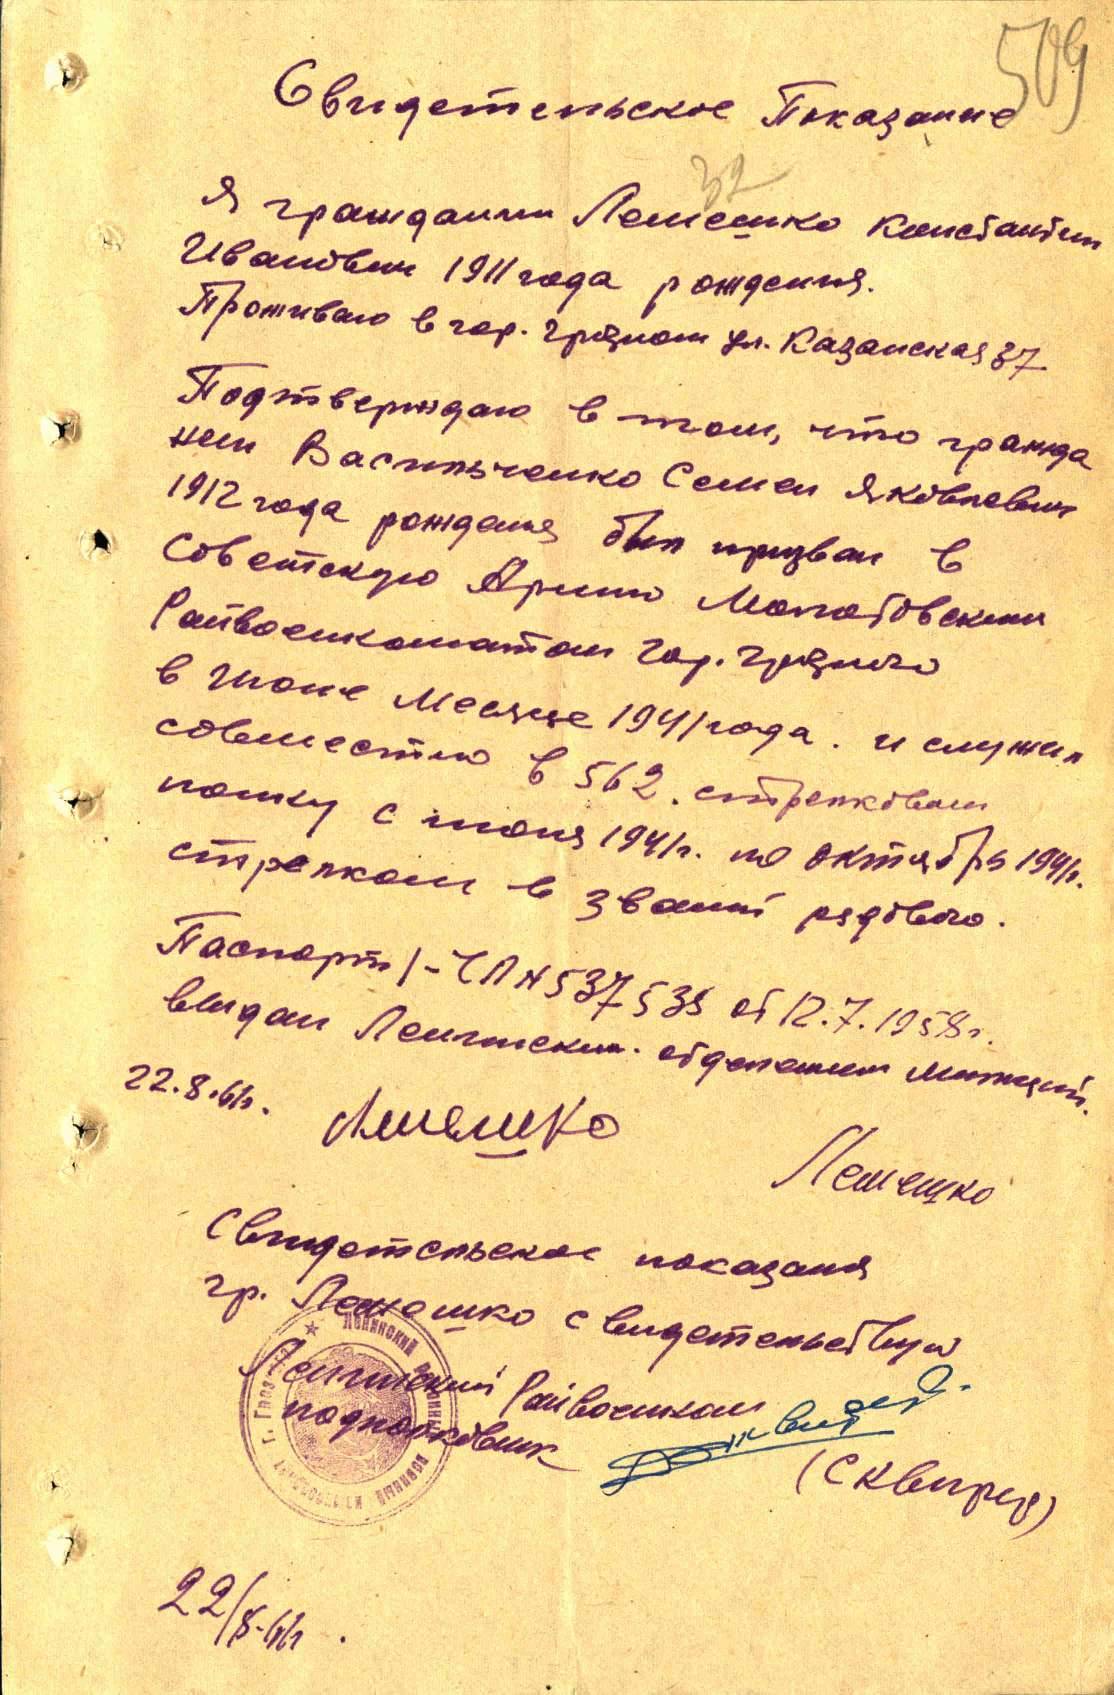 509
Свидетельское Показание
32
Я гражданин Лемешко Константин
Иванович 1911 года рождения.
Проживаю в гор. Грозном ул. Казанская 37
Подтверждаю в том, что гражда
нин Васильченко Семен Яковлевич
1912 года рождения был призван в
Советскую Армию Молотовским
Райвоенкоматом гор. Грозного
в Июне месяце 1941 года. и служил
совместно в 562. стрелковом
полку с июня 1941г. по октябрь 1941г.
стрелком в звании рядового.
Паспорт I-ЧЛ N 537535 от 12.7.1958г.
выдан Ленинским. отделением милиции.
22.8.61г. Лемешко
Лемешко
Свидетельское показания
гр. Лемешко свидетельствую
Ленинский Райвоенком
подполковник
(Сквиря)
Ленинский районный военный комиссариат г. Грозный
22/8-61г.